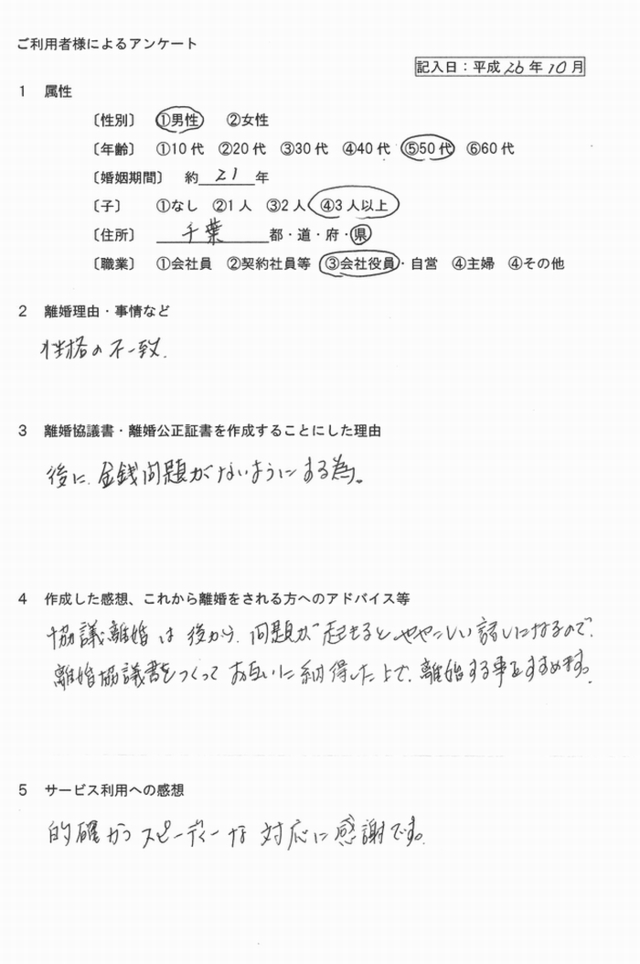 ご利用者様によるアンケート
記入日：平成26年10月
1 属性
〔性別〕 ①男性 ②女性
〔年齢〕 ①10代 ②20代 ③30代 ④40代 ⑤50代 ⑥60代
〔婚姻期間〕 約21年
〔子〕 ①なし ②1人 ③2人 ④3人以上
〔住所〕 千葉 都・道・府・県
〔職業〕 ①会社員 ②契約社員等 ③会社役員・自営 ④主婦 ④その他
2 離婚理由・事情など
性格の不一致.
3 離婚協議書・離婚公正証書を作成することにした理由
後に、金銭問題がないようにする為。
4 作成した感想、これから離婚をされる方へのアドバイス等
協議離婚は後から、問題が起きるとややこしい話しになるので、
離婚協議書をつくってお互いに納得した上で、離婚する事をすすめます。
5 サービス利用への感想
的確かつスピーディーな対応に感謝です。